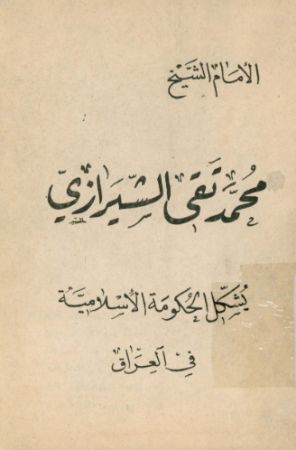 الإمام الشيخ
محمد تقي الشيرازي
يشكل الحكومة الإسلامية
في العراق